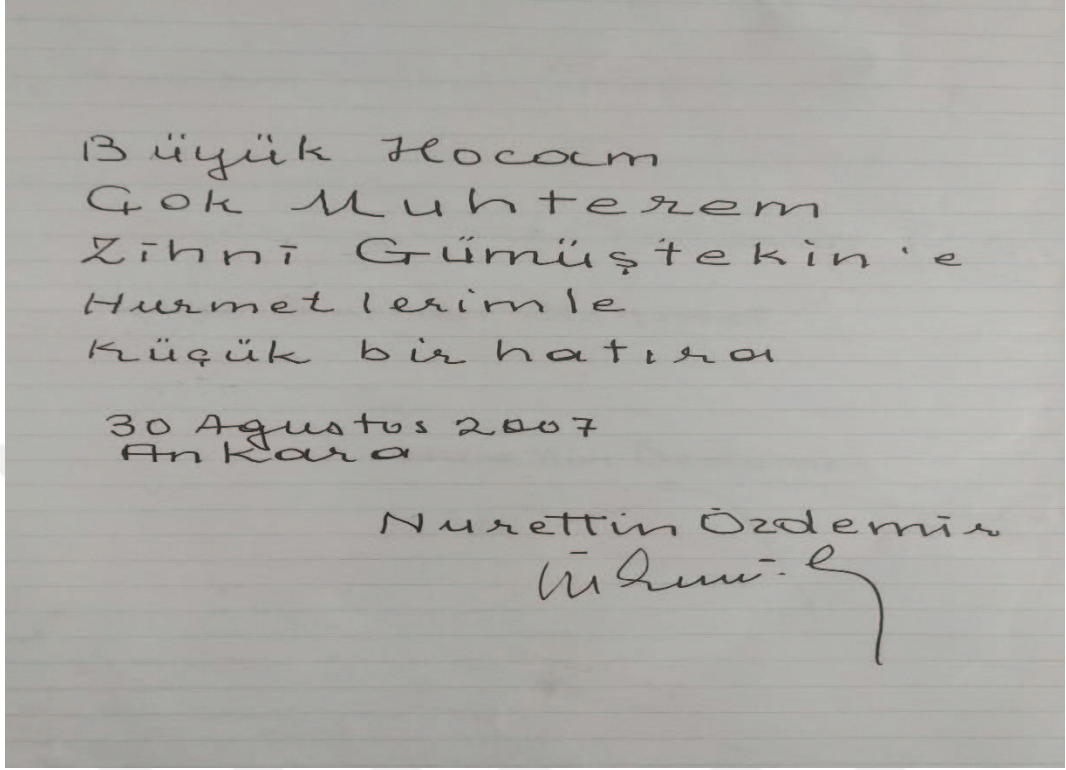 Büyük Hocam
Çok Muhterem
Zihni Gümüştekin'e
Hurmetlerimle
Küçük bir hatıra
30 Agustos 2007
Ankara
Nurettin Özdemir